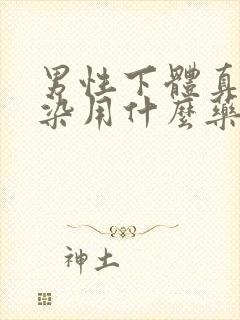 男性下體真
染用什麼藥
神土